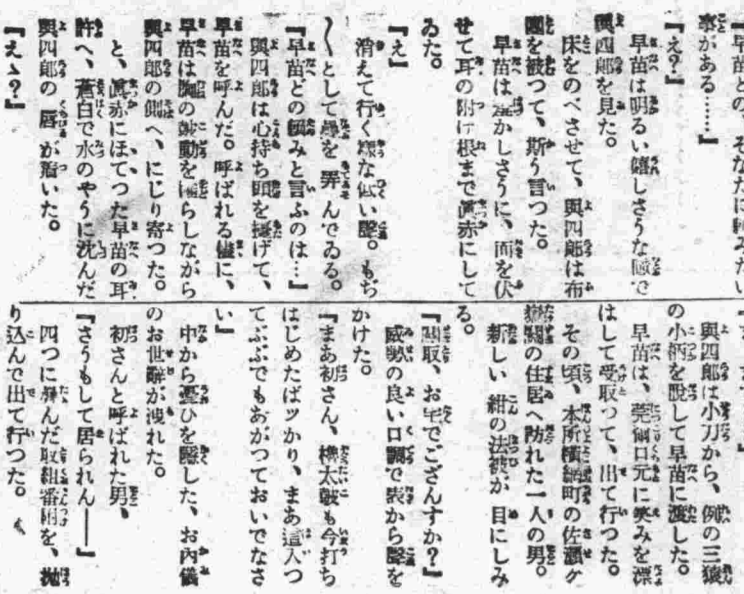 『早苗どの、そなたに頼みたい
事がある……』
『え？』
早苗は明るい嬉しさうな瞳で
與四郎を見た。
床をのべさせて、與四郎は布
團を被つて、斯う言つた。
早苗は羞かしさうに、面を伏
せて耳の附け根まで眞赤にして
ゐた。
『え』
消えて行く樣な低い聲。もぢ
〳〵として 弄んでゐる。
『早苗どの頼みと言ふのは…』
與四郎は心持ち頭を擡げて、
早苗を呼んだ。呼ばれる儘に、
早苗は胸の鼓動を らしながら
與四郎の側へ、にじり寄つた。
と、眞赤にほてつた早苗の耳
許へ、蒼白で水のやうに沈んだ
與四郎の 唇が いた。
『えゝ？』
與四郎は小刀から、例の三猿
の小柄を脱して早苗に渡した。
早苗は、莞爾口元に笑みを漂
はして受取つて、出て行つた。
その頃、本所横網町の佐瀬ケ
嶽關の住居へ訪れた一人の男。
新しい 紺の法被が 目にしみ
る。
『關取、お宅でござんすか？』
威勢の良い口調で表から聲を
かけた。
『まあ初さん、櫓太鼓も今打ち
はじめたばツかり、まあ這入つ
てぶぶでもあがつておいでなさ
い』
中から憂ひを隱した、お内儀
のお世辭が洩れた。
初さんと呼ばれた男、
『さうもして居られん――』
四つに疊んだ取組番附を、抛
り込んで出て行つた。